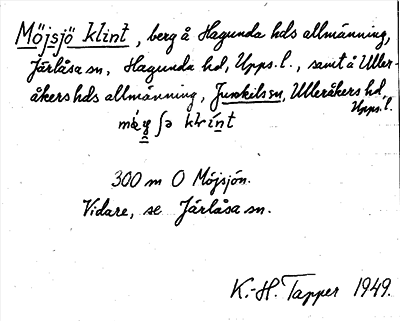 Möjsjö klint, berg å Hagunda hds allmänning,
Järlåsa sn, Hagunda hd, Upps. l., samt å Uller-
åkers hds allmänning, Jumkils sn, Ulleråkers hd,
Upps. l.
klínt
300 m O Möjsjön.
Vidare, se Järlåsa sn.
K.-H. Tapper 1949.